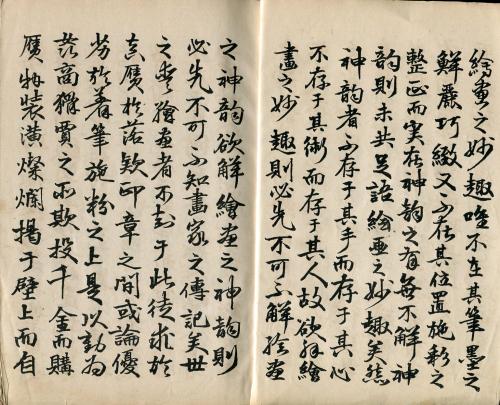 繪畫之妙趣唯不在其筆墨之
鮮麗巧緻又不在其位置施彩之
整正而実在神韵之有無不解神
韵則未共足語繪畫之妙趣矣然
神韵者不存于其手而存于其心
不存于其術而存于其人故欲解繪
畫之妙趣則必先不可不解繪畫
之神韵欲解繪畫之神韵則
必先不可不知畫家之傳記矣世
之愛繪畫者不刻于此徒求於
真贋於落款印章之間或論優
劣於着筆施粉之上是以動為
茫高猾賈之所欺投千金而購
贋物装潢燦爛掲于壁上而自